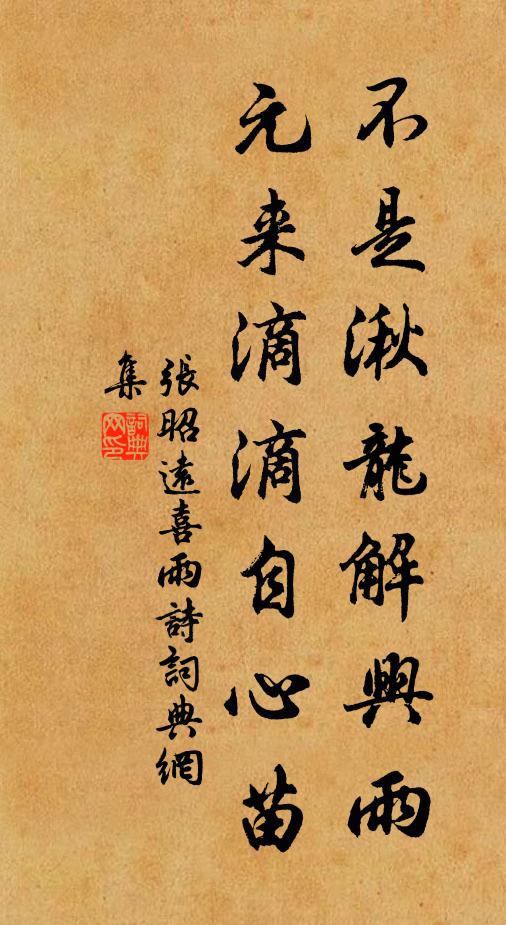 不是湫龍解興雨
元来滴滴自心苗
張昭遠喜雨詩詞典網
集
詞典网印